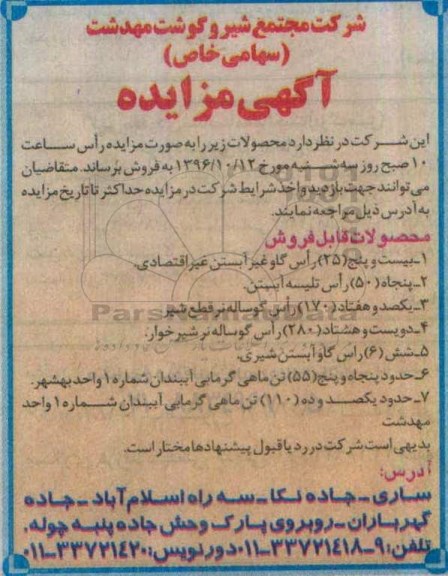 شرکت مجتمع شیر و گوشت مهدشت
(سهامی خاص)
آگهی مزایده
این شرکت در نظر دارد محصولات زیر را به صورت مزایده رأس ساعت
۱۰ صبح روز سه شنبه مورخ ۱۳۹۶/۱۰/۱۲ به فروش برساند. متقاضیان
می‌توانند جهت بازدید و اخذ شرایط شرکت در مزایده حداکثر تا تاریخ مزایده
به آدرس ذیل مراجعه نمایند.
محصولات قابل فروش
۱-بیست و پنج (۲۵) رأس گاو غیر آبستن غیراقتصادی.
۲-پنجاه (۵۰) رأس تلیسه آبستن.
۳-یکصد و هفتاد (۱۷۰) رأس گوساله نر قطع شیر.
۴-دویست و هشتاد (۲۸۰) رأس گوساله نر شیرخوار.
۵-شش (۶) راس گاو آبستن شیری.
۶-حدود پنجاه و پنج (۵۵) تن ماهی گرمابی آببندان شماره ۱ واحد بهشهر.
۷-حدود یکصد و ده (۱۱۰) تن ماهی گرمابی آببندان شماره ۱ واحد
مهدشت
بدیهی است شرکت در رد یا قبول پیشنهادها مختار است.
آدرس:
ساری-جاده نکا-سه راه اسلام آباد-جاده
گهرباران-روبروی پارک وحش جاده پنبه چوله.
تلفن: ۹-۰۱۱-۳۳۷۲۱۴۱۸ دورنویس: ۰۱۱-۳۳۷۲۱۴۲۰
ParsNamadData